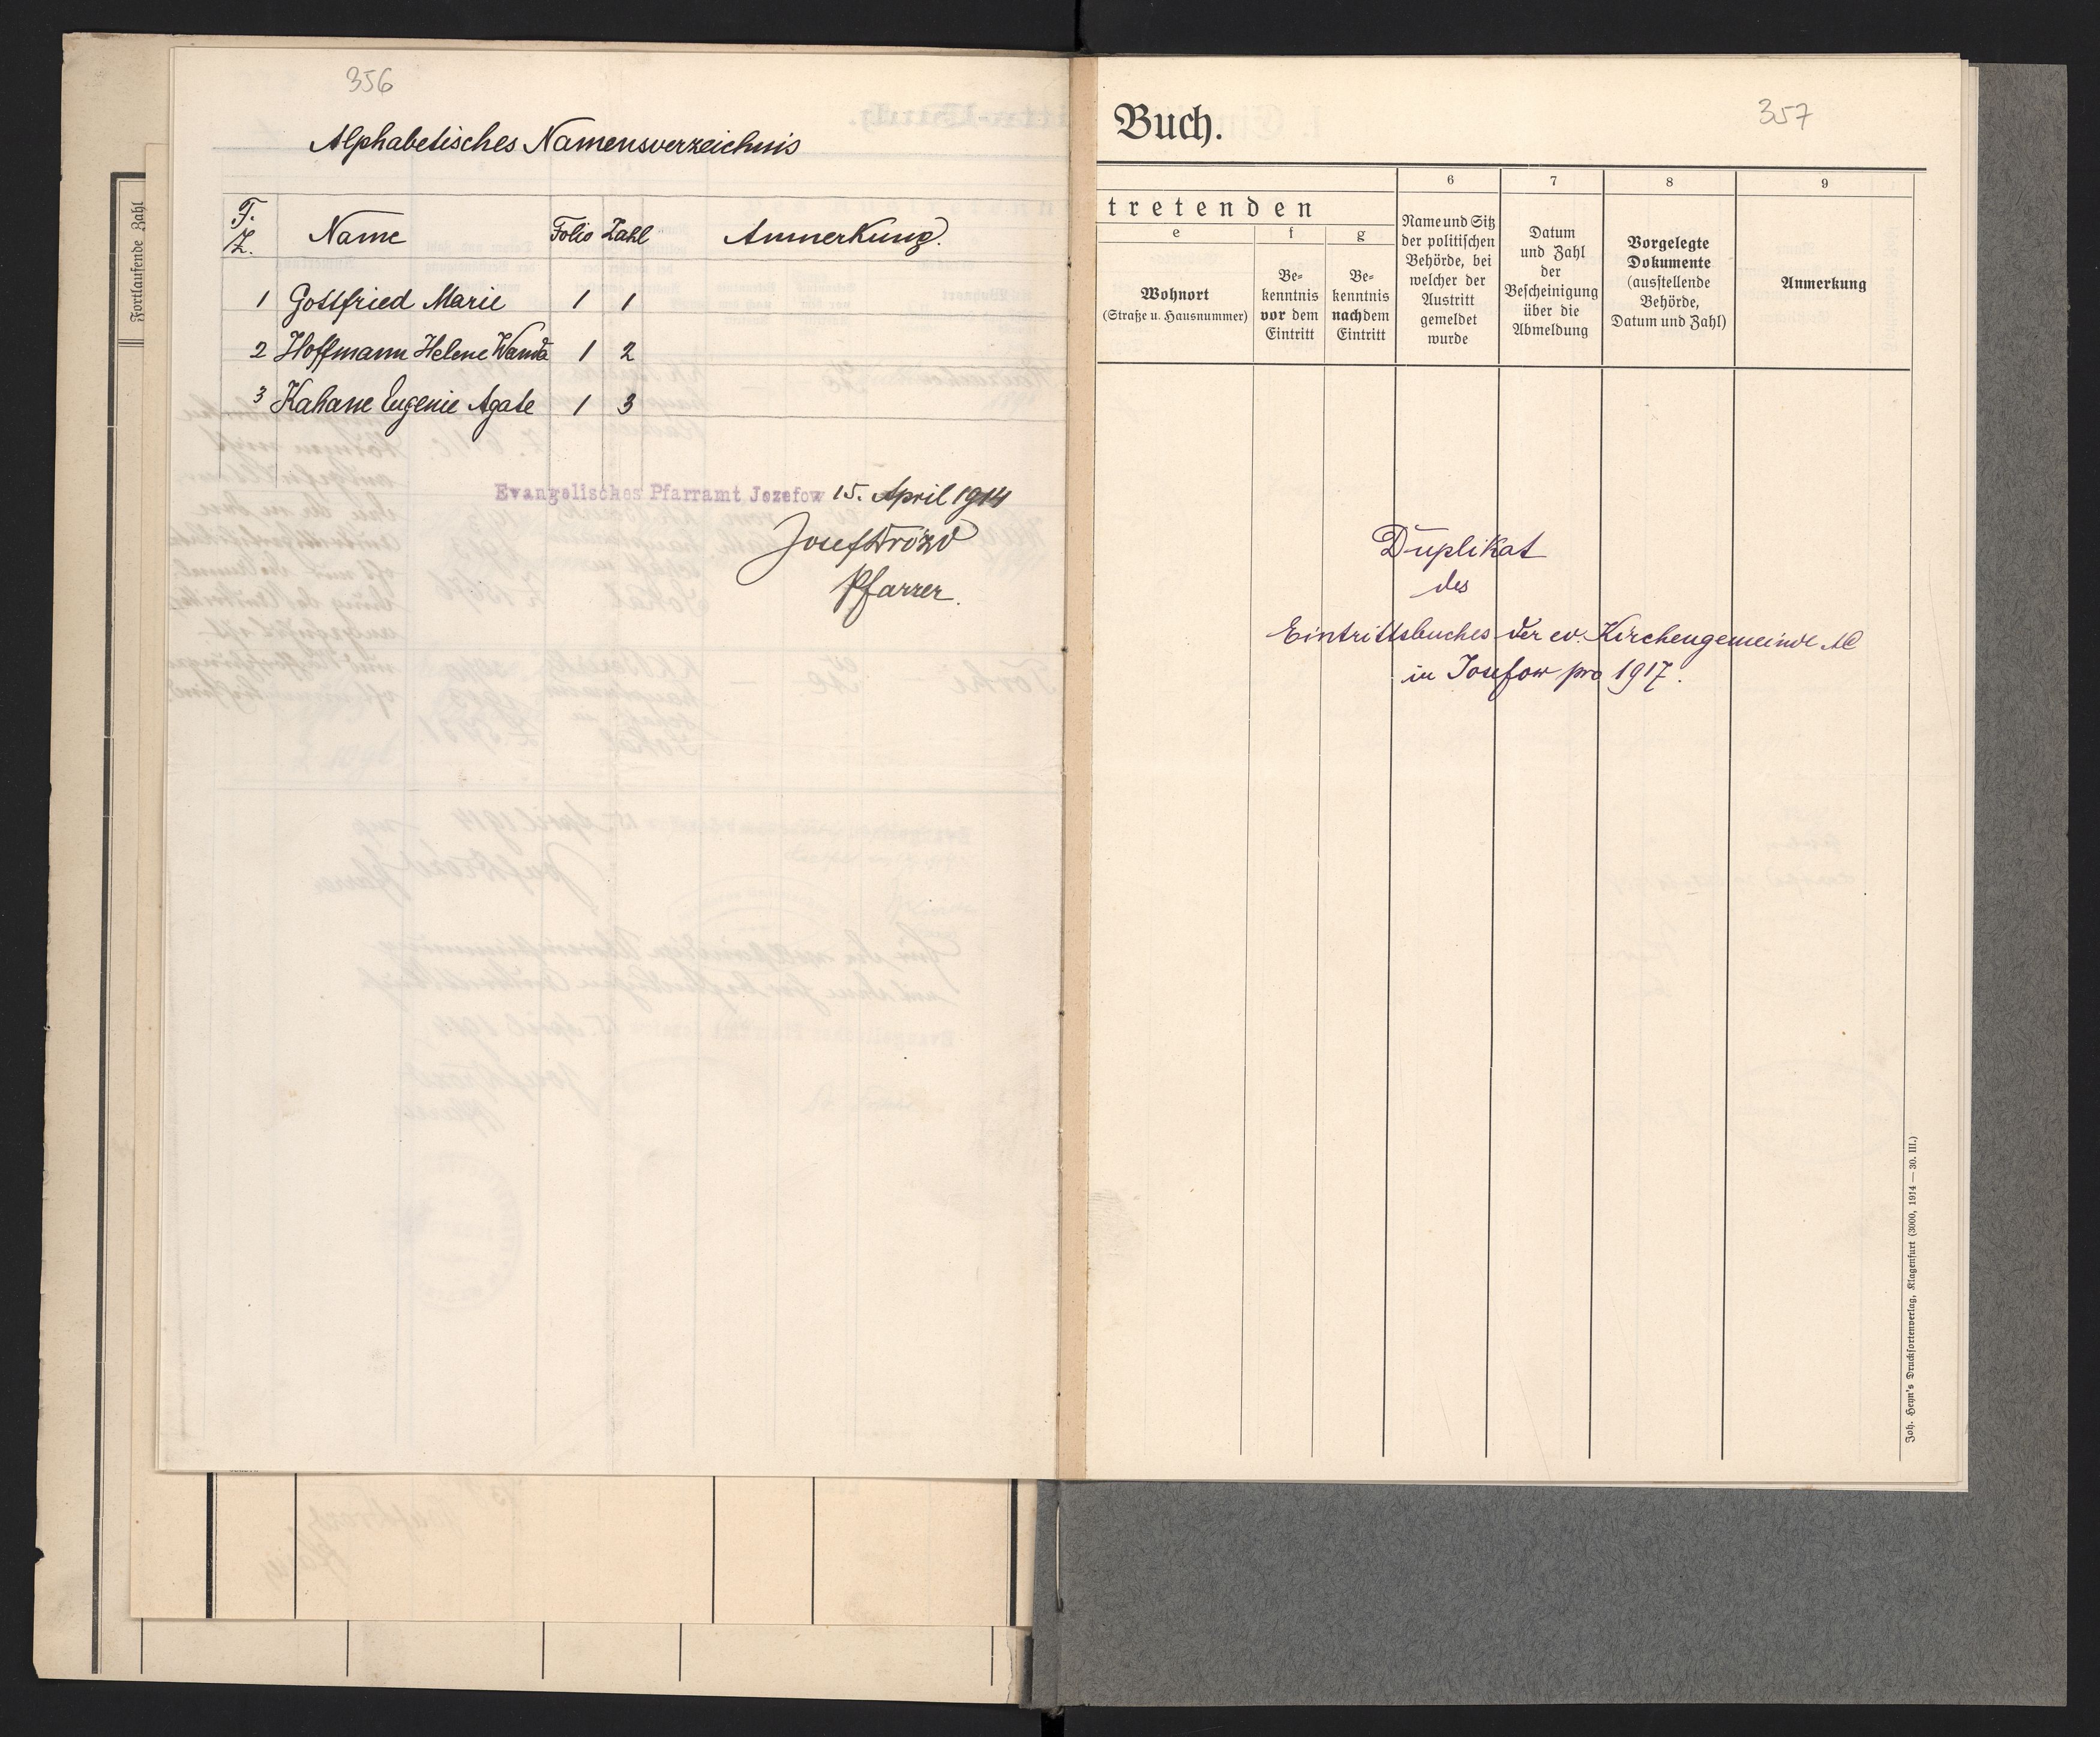 356
Alphabetisches Namensverzeichnis
F. Z. Name Folio Zahl Anmerkung.
1 Gottfried Marie 1 1
2 Hoffmann Helene Wanda 1 2
3 Kahane Eugenie Agate 1 3
Evangelisches Pfarramt Jozefow 15. April 1914
Josef Drozd
Pfarrer.
Fortlaufende Zahl
357
Buch.
tretenden
e
Wohnort
(Straße u. Hausnummer)
f
Be-
kenntnis
vor dem
Eintritt
g
Be-
kenntnis
nach dem
Eintritt
6
Name und Sitz
der politischen
Behörde, bei
welcher der
Austritt
gemeldet
wurde
7
Datum
und Zahl
der
Bescheinigung
über die
Abmeldung
8
Vorgelegte
Dokumente
(ausstellende
Behörde,
Datum und Zahl)
9
Anmerkung
Duplikat
des
Eintrittsbuches der ev. Kirchengemeinde AC
in Josefow pro 1917.
Joh. Heyn's Drucksortenverlag, Klagenfurt (3000, 1914 — 30. III.)